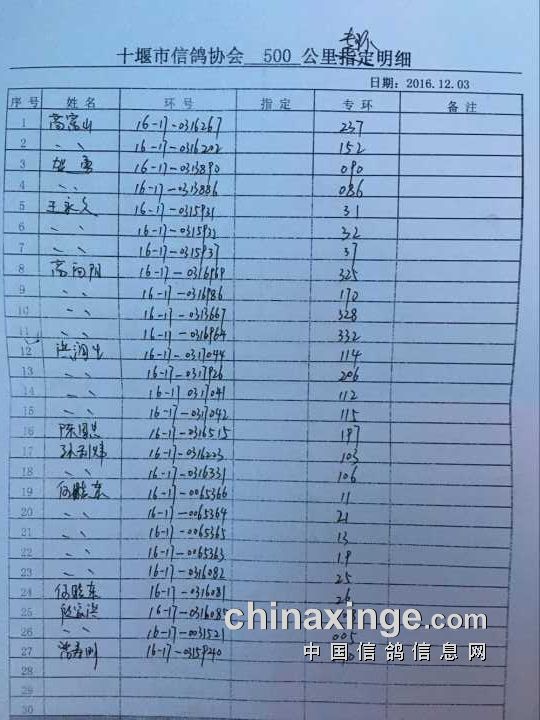 专环
十堰市信鸽协会 500 公里指定明细
日期: 2016.12.03
序号 姓名 环号 指定 专环 备注
1 高富山 16-17-0316267 237
2 〃 16-17-0316202 152
3 16-17-0313890 090
4 〃 16-17-0313886 086
5 王永久 16-17-0315931 31
6 〃 16-17-0315932 32
7 〃 16-17-0315937 37
8 高向阳 16-17-0316969 325
9 〃 16-17-0316986 170
10 〃 16-17-0313667 328
11 〃 16-17-0316964 332
12 16-17-0317044 114
13 〃 16-17-0317926 206
14 〃 16-17-0317041 112
15 〃 16-17-0317042 115
16 16-17-0316515 197
17 16-17-0316223 103
18 〃 16-17-0316331 106
19 何胜东 16-17-0065366 11
20 〃 16-17-0065364 21
21 〃 16-17-0065365 13
22 〃 16-17-0065363 19
23 〃 16-17-0316082 25
24 何胜东 16-17-0316081 26
25 16-17-031608
26 〃 16-17-0031521 005
27 16-17-03159240
28
29
30
chinaxinge.com
中国信鸽信息网